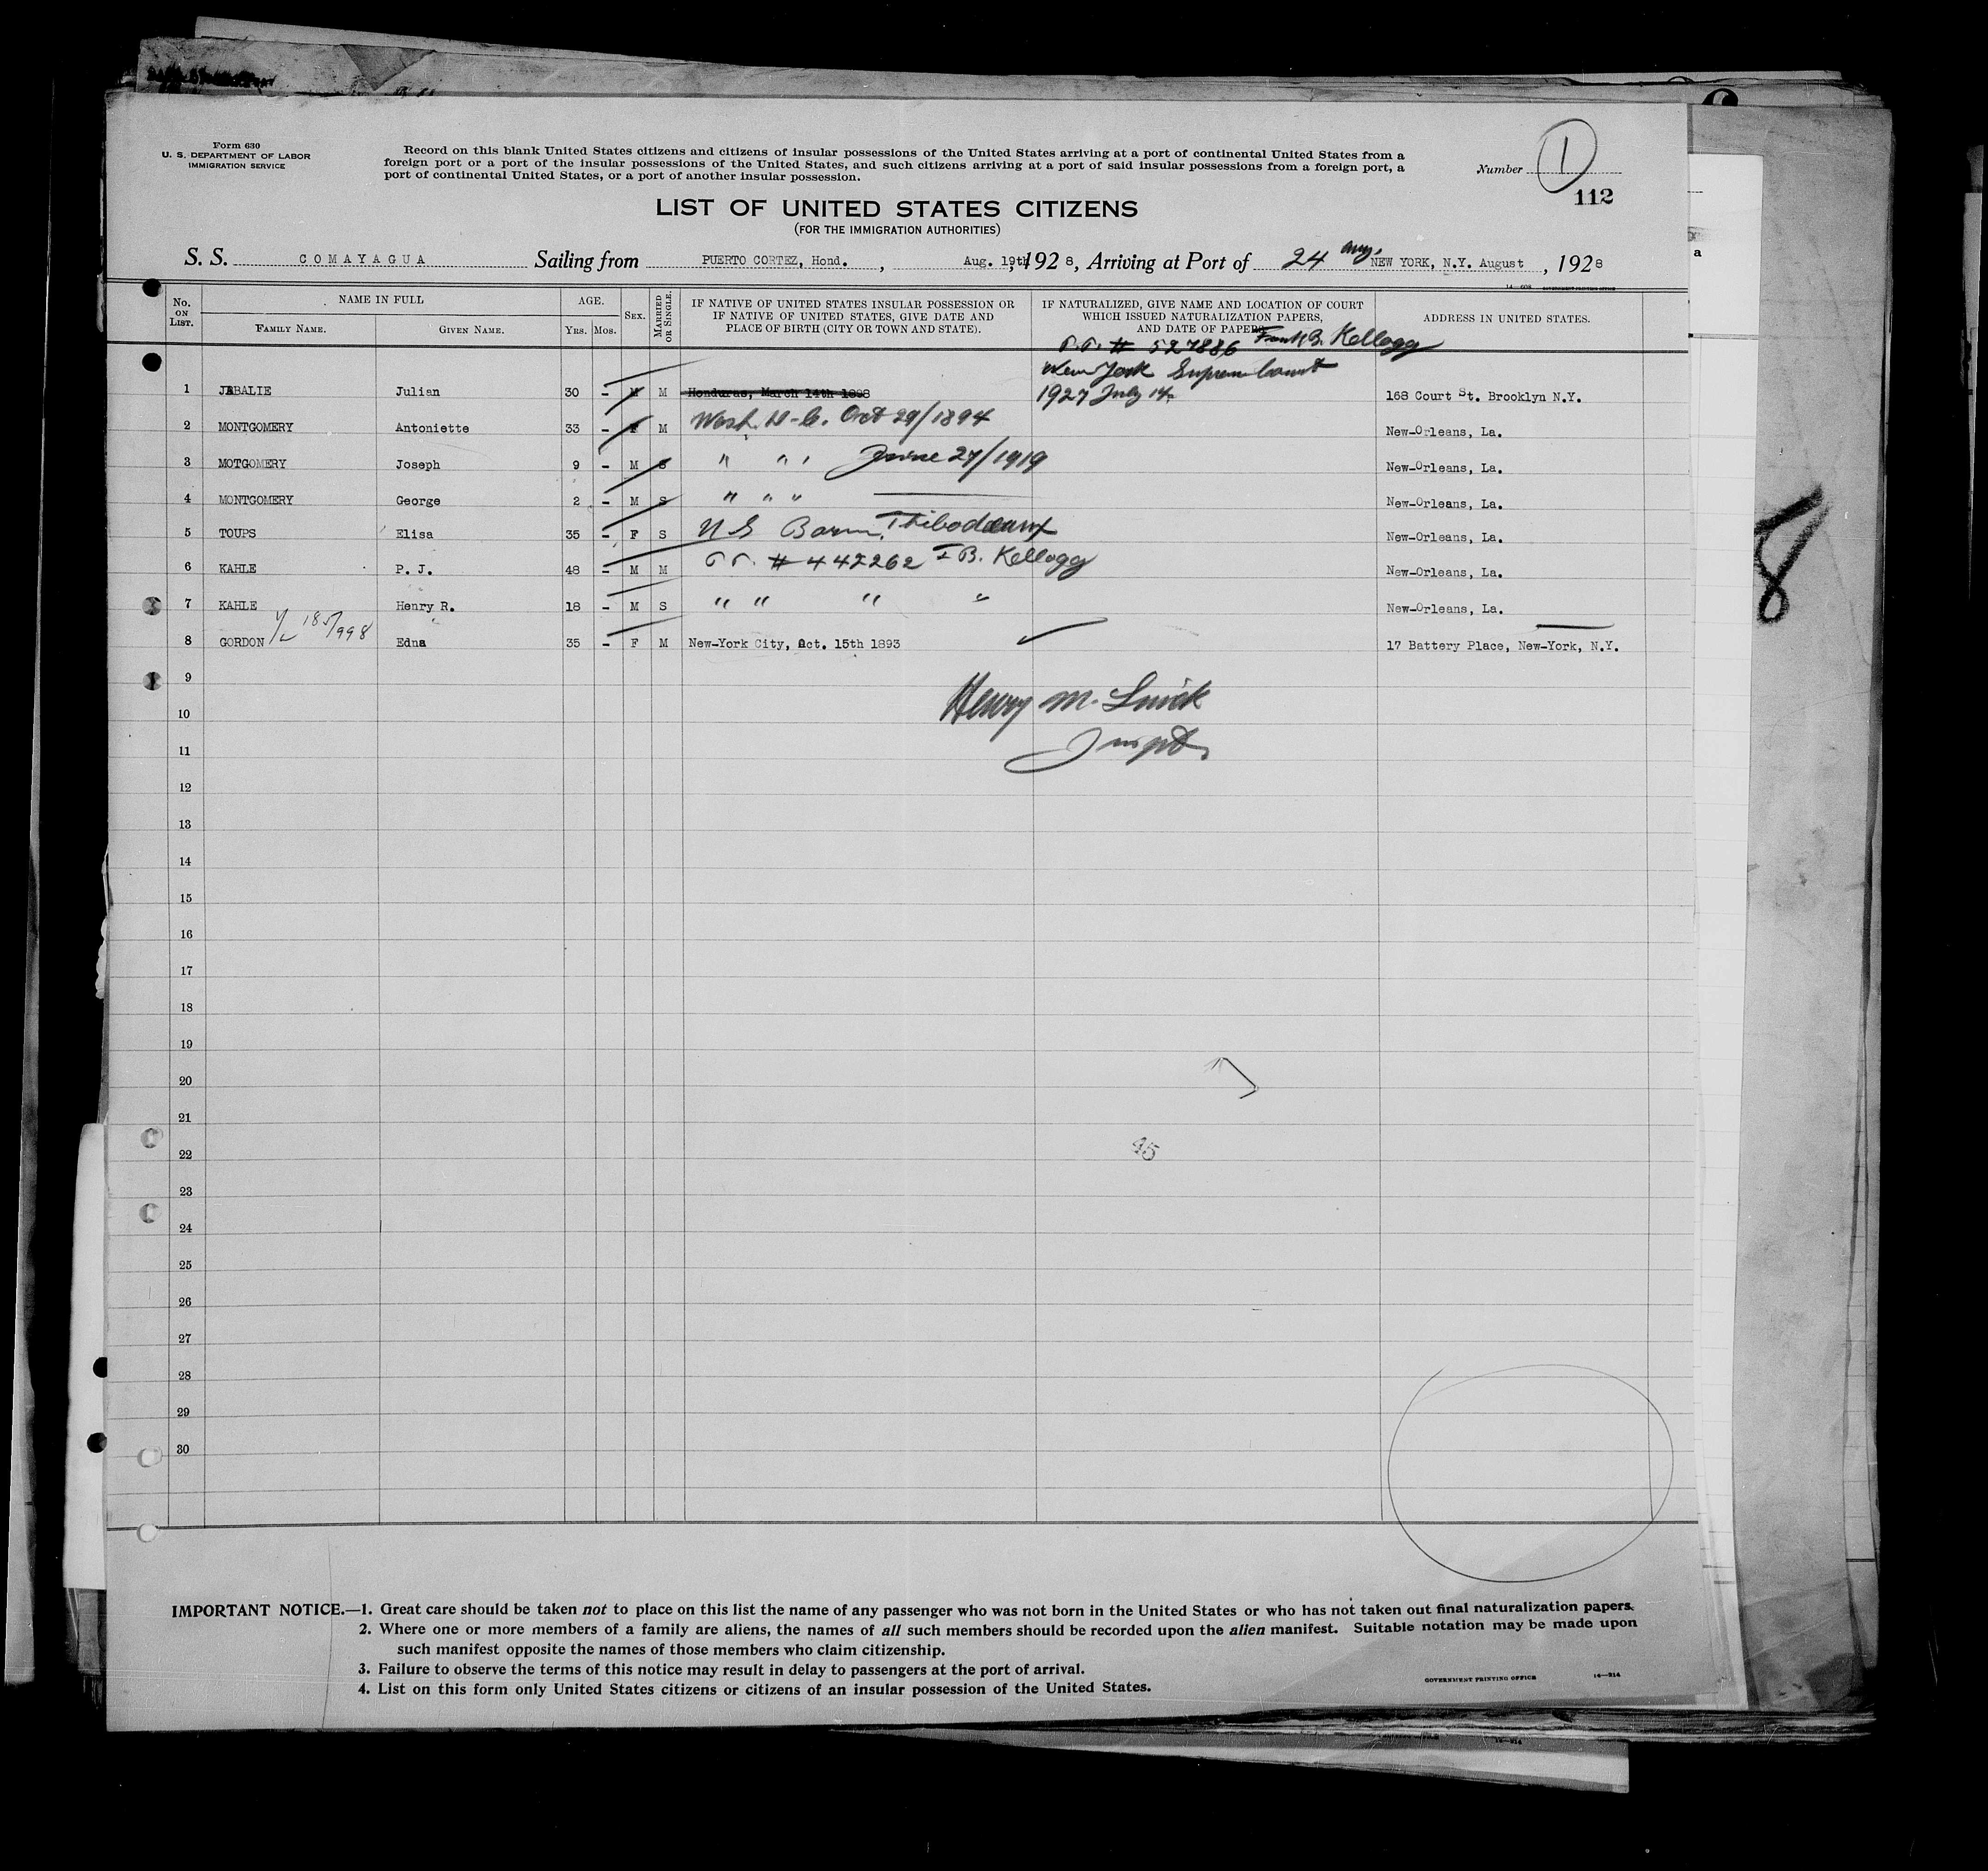 Form 630
U. S. DEPARTMENT OF LABOR
IMMIGRATION SERVICE
Record on this blank United States citizens and citizens of insular possessions of the United States arriving at a port of continental United States from a
foreign port or a port of the insular possessions of the United States, and such citizens arriving at a port of said insular possessions from a foreign port, a
port of continental United States, or a port of another insular possession.
Number 1
112
LIST OF UNITED STATES CITIZENS
(FOR THE IMMIGRATION AUTHORITIES)
S. S. COMAYAGUA Sailing from PUERTO CORTEZ, Hond., Aug. 19th, 1928, Arriving at Port of 24 Aug. NEW YORK, N.Y. August, 1928
No. ON LIST. NAME IN FULL FAMILY NAME. GIVEN NAME. AGE. YRS. MOS. SEX. MARRIED OR SINGLE. IF NATIVE OF UNITED STATES INSULAR POSSESSION OR IF NATIVE OF UNITED STATES, GIVE DATE AND PLACE OF BIRTH (CITY OR TOWN AND STATE). IF NATURALIZED, GIVE NAME AND LOCATION OF COURT WHICH ISSUED NATURALIZATION PAPERS, AND DATE OF PAPERS. ADDRESS IN UNITED STATES.
# 527886 Frank B. Kellogg
New York Supreme Court
1 JABALIE Julian 30 - M M Honduras, March 14th 1898 1927 July 14 168 Court St. Brooklyn N.Y.
2 MONTGOMERY Antoniette 33 - F M Wash. D.C. Oct 29/1894 New-Orleans, La.
3 MOTGOMERY Joseph 9 - M S " " " June 27/1919 New-Orleans, La.
4 MONTGOMERY George 2 - M S " " " New-Orleans, La.
5 TOUPS Elisa 35 - F S U S Born, Thibodeaux New-Orleans, La.
6 KAHLE P. J. 48 - M M # 442262 F B. Kellogg New-Orleans, La.
7 KAHLE Henry R. 18 - M S " " " " New-Orleans, La.
8 GORDON Edna 35 - F M New-York City, Oct. 15th 1893 17 Battery Place, New-York, N.Y.
9
Henry M.
10
11
12
13
14
15
16
17
18
19
20
21
22
45
23
24
25
26
27
28
29
30
IMPORTANT NOTICE.—1. Great care should be taken not to place on this list the name of any passenger who was not born in the United States or who has not taken out final naturalization papers.
2. Where one or more members of a family are aliens, the names of all such members should be recorded upon the alien manifest. Suitable notation may be made upon
such manifest opposite the names of those members who claim citizenship.
3. Failure to observe the terms of this notice may result in delay to passengers at the port of arrival.
4. List on this form only United States citizens or citizens of an insular possession of the United States.
GOVERNMENT PRINTING OFFICE 14—314
8
a